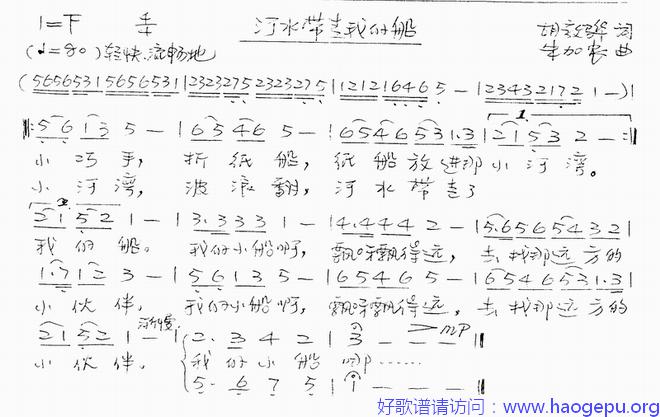 1=F 4/4 河水带走我的船 胡敦骅 词
(♩=80) 轻快、流畅地 牛加农 曲
(5656531 5656531 | 2323275 2323275 | 12121646 5 — | 23432172 1 —)|
‖: 5 6 1 3 5 — | 6 5 4 6 5 — | 6 5 4 6 5 3 1.3 | 1. 2 1 5 3 2 — :‖
小 巧 手, 折 纸 船, 纸 船 放 进 那 小 河 湾。
小 河 湾, 波 浪 翻, 河 水 带 走 了
2. 2 1 5 2 1 — | 3.3 3 3 1 — | 4.4 4 4 2 — | 5.6 5 6 5 4 3 2 |
我 的 船。 我的小船啊, 飘呀飘得远, 去找那远方的
1.7 1 2 3 — | 5 6 1 3 5 — | 1 6 5 4 6 5 — | 6 5 4 6 5 3 1.3 |
小 伙 伴, 我的小船啊, 飘呀飘得远, 去找那远方的
2 1 5 2 1 — 渐慢 | 2. 3 4 2 | 3 — — — ‖ > mp
小 伙 伴, 我 的 小 船 啊……
5. 6 7 5 | 1 — — — ‖
好歌谱请访问：www.haogepu.org